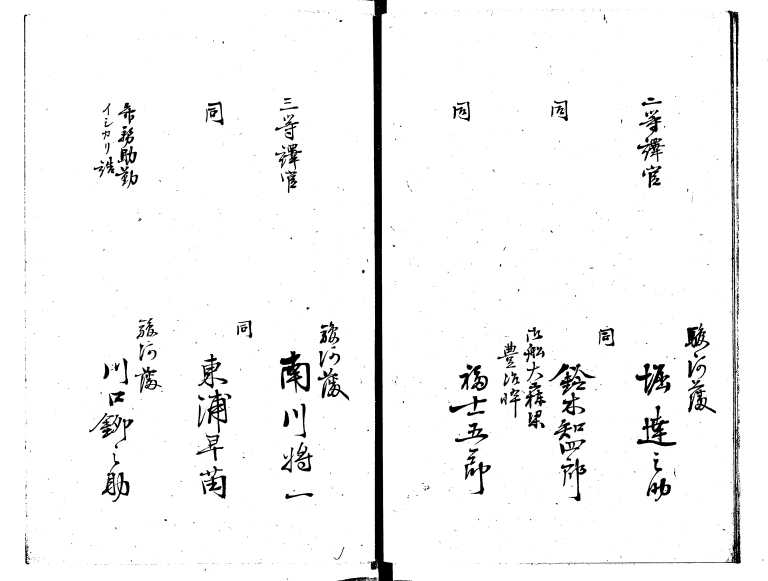 二等譯官
駿河藩
堀達之助
同
同
鈴木知四郎
同
御船大工
豊治倅
福士五郎
三等譯官
駿河藩
南川将一
同
同
東浦早苗
庶務助勤
イシカリ詰
駿河藩
川口鉚之助